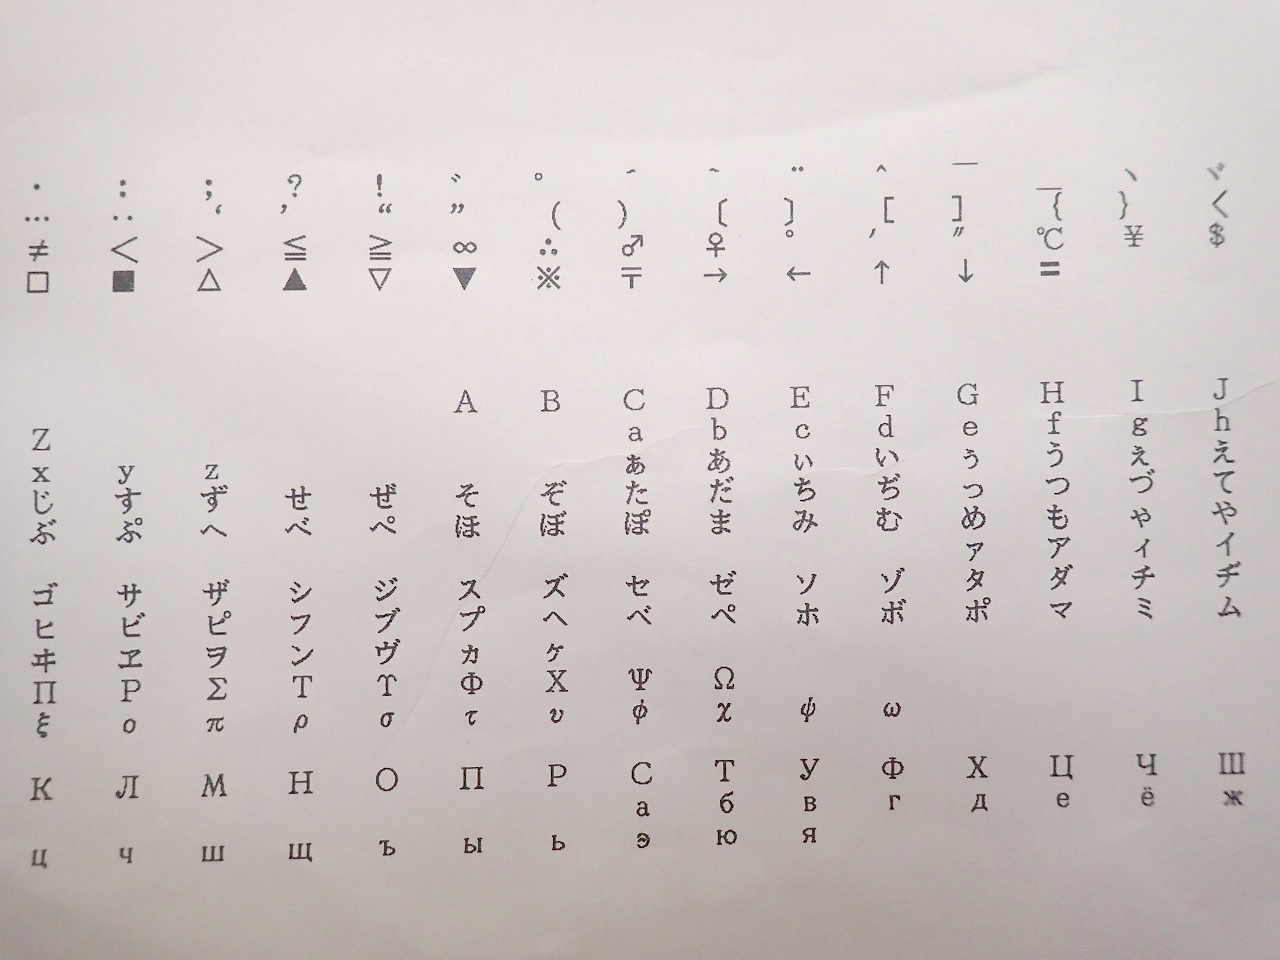 ・ ： ； ？ ！ ゛ ゜ ´ ｀ ¨ ＾ ￣ ＿ ヽ ヾ
… ‥ ‘ ’ “ ” （ ） 〔 〕 ［ ］ ｛ ｝ 〈
≠ ＜ ＞ ≦ ≧ ∞ ∴ ♂ ♀ ° ′ ″ ℃ ￥ ＄
□ ■ △ ▲ ▽ ▼ ※ 〒 → ← ↑ ↓ 〓
A B C D E F G H I J
Z a b c d e f g h
x y z ぁ あ ぃ い ぅ う ぇ え
じ す ず せ ぜ そ ぞ た だ ち ぢ っ つ づ て
ぶ ぷ へ べ ぺ ほ ぼ ぽ ま み む め も ゃ や
ァ ア ィ イ
ゴ サ ザ シ ジ ス ズ セ ゼ ソ ゾ タ ダ チ ヂ
ヒ ビ ピ フ ブ プ ヘ ベ ペ ホ ボ ポ マ ミ ム
ヰ ヱ ヲ ン ヴ ヵ ヶ
Π Ρ Σ Τ Υ Φ Χ Ψ Ω
ξ ο π ρ σ τ υ φ χ ψ ω
К Л М Н О П Р С Т У Ф Х Ц Ч Ш
а б в г д е ё ж
ц ч ш щ ъ ы ь э ю я